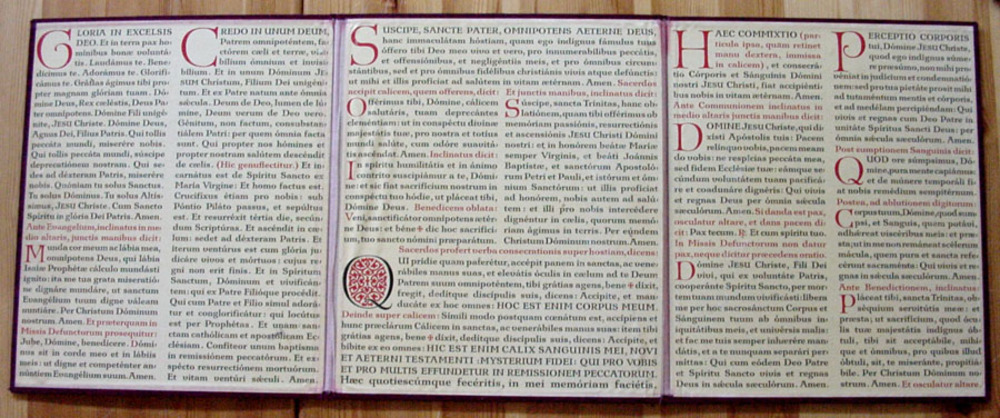 GLORIA IN EXCELSIS
DEO. Et in terra pax ho-
minibus bonæ voluntá-
tis. Laudámus te. Bene-
dícimus te. Adorámus te. Glorifi-
cámus te. Grátias ágimus tibi pro-
pter magnam glóriam tuam. Dó-
mine Deus, Rex cæléstis, Deus Pa-
ter omnípotens. Dómine Fili unigé-
nite, JESU Christe. Dómine Deus,
Agnus Dei, Fílius Patris. Qui tollis
peccáta mundi, miserére nobis.
Qui tollis peccáta mundi, súscipe
deprecatiónem nostram. Qui se-
des ad déxteram Patris, miserére
nobis. Quóniam tu solus Sanctus.
Tu solus Dóminus. Tu solus Altís-
simus, JESU Christe. Cum Sancto
Spíritu in glória Dei Patris. Amen.
Ante Evangelium, inclinatus in me-
dio altaris, junctis manibus dicit:
Munda cor meum ac lábia mea,
omnípotens Deus, qui lábia
Isaíæ Prophétæ cálculo mundásti
igníto: ita me tua grata miseratió-
ne dignáre mundáre, ut sanctum
Evangélium tuum digne váleam
nuntiáre. Per Christum Dóminum
nostrum. Amen. Et præterquam in
Missis Defunctorum prosequitur:
Jube, Dómine, benedícere. Dómi-
nus sit in corde meo et in lábiis
meis: ut digne et competénter an-
núntiem Evangélium suum. Amen.
CREDO IN UNUM DEUM,
Patrem omnipoténtem, fa-
ctórem cœli et terræ, visi-
bílium ómnium et invisi-
bílium. Et in unum Dóminum JE-
SUM Christum, Fílium Dei unigéni-
tum. Et ex Patre natum ante ómnia
sǽcula. Deum de Deo, lumen de lú-
mine, Deum verum de Deo vero.
Génitum, non factum, consubstan-
tiálem Patri: per quem ómnia facta
sunt. Qui propter nos hómines et
propter nostram salútem descéndit
de cælis. (Hic genuflectitur.) Et in-
carnátus est de Spíritu Sancto ex
María Vírgine: Et homo factus est.
Crucifíxus étiam pro nobis: sub
Póntio Piláto passus, et sepúltus
est. Et resurréxit tértia die, secún-
dum Scriptúras. Et ascéndit in cæ-
lum: sedet ad déxteram Patris. Et
íterum ventúrus est cum glória ju-
dicáre vivos et mórtuos: cujus re-
gni non erit finis. Et in Spíritum
Sanctum, Dóminum et vivificán-
tem: qui ex Patre Filióque procédit.
Qui cum Patre et Fílio simul adorá-
tur et conglorificátur: qui locútus
est per Prophétas. Et unam san-
ctam cathólicam et apostólicam Ec-
clésiam. Confíteor unum baptísma
in remissiónem peccatórum. Et ex-
spécto resurrectiónem mortuórum.
Et vitam ventúri sǽculi. Amen.
SUSCIPE, SANCTE PATER, OMNIPOTENS AETERNE DEUS,
hanc immaculátam hóstiam, quam ego indígnus fámulus tuus
óffero tibi Deo meo vivo et vero, pro innumerabílibus peccátis,
et offensiónibus, et negligéntiis meis, et pro ómnibus circum-
stántibus, sed et pro ómnibus fidélibus christiánis vivis atque defúnctis:
ut mihi et illis profíciat ad salútem in vitam ætérnam. Amen. Sacerdos
accipit calicem, quem offerens, dicit:
Offérimus tibi, Dómine, cálicem
salutáris, tuam deprecántes
cleméntiam: ut in conspéctu divínæ
majestátis tuæ, pro nostra et totíus
mundi salúte, cum odóre suavitá-
tis ascéndat. Amen. Inclinatus dicit:
In spíritu humilitátis et in ánimo
contríto suscipiámur a te, Dómi-
ne: et sic fiat sacrifícium nostrum in
conspéctu tuo hódie, ut pláceat tibi,
Dómine Deus. Benedicens oblata:
Veni, sanctificátor omnípotens ætér-
ne Deus: et béne ✠ dic hoc sacrifíci-
um, tuo sancto nómini præparátum.
Et junctis manibus, inclinatus dicit:
Súscipe, sancta Trínitas, hanc ob-
latiónem, quam tibi offérimus ob
memóriam passiónis, resurrectiónis
et ascensiónis JESU Christi Dómini
nostri: et in honórem beátæ Maríæ
semper Vírginis, et beáti Joánnis
Baptístæ, et sanctórum Apostoló-
rum Petri et Pauli, et istórum et óm-
nium Sanctórum: ut illis profíciat
ad honórem, nobis autem ad salú-
tem: et illi pro nobis intercédere
dignéntur in cælis, quorum memó-
riam ágimus in terris. Per eúndem
Christum Dóminum nostrum. Amen.
Sacerdos profert verba consecrationis super hostiam, dicens:
QUI prídie quam paterétur, accépit panem in sanctas, ac vene-
rábiles manus suas, et elevátis óculis in cælum ad te Deum
Patrem suum omnipoténtem, tibi grátias agens, bene ✠ díxit,
fregit, dedítque discípulis suis, dicens: Accípite, et man-
ducáte ex hoc omnes: HOC EST ENIM CORPUS MEUM.
Deinde super calicem: Símili modo postquam cœnátum est, accípiens et
hunc præclárum Cálicem in sanctas, ac venerábiles manus suas: item tibi
grátias agens, bene ✠ díxit, dedítque discípulis suis, dicens: Accípite, et
bíbite ex eo omnes: HIC EST ENIM CALIX SANGUINIS MEI, NOVI
ET AETERNI TESTAMENTI: MYSTERIUM FIDEI: QUI PRO VOBIS
ET PRO MULTIS EFFUNDETUR IN REMISSIONEM PECCATORUM.
Hæc quotiescúmque fecéritis, in mei memóriam faciétis.
HAEC COMMIXTIO (par-
ticula ipsa, quam retinet
manu dextera, immissa
in calicem), et consecrá-
tio Córporis et Sánguinis Dómini
nostri JESU Christi, fiat accipiénti-
bus nobis in vitam ætérnam. Amen.
Ante Communionem inclinatus in
medio altaris junctis manibus dicit:
DOMINE JESU Christe, qui di-
xísti Apóstolis tuis: Pacem
relínquo vobis, pacem meam
do vobis: ne respícias peccáta mea,
sed fidem Ecclésiæ tuæ: eámque se-
cúndum voluntátem tuam pacificá-
re et coadunáre dignéris: Qui vivis
et regnas Deus per ómnia sǽcula
sæculórum. Amen. Si danda est pax,
osculatur altare, et dans pacem di-
cit: Pax tecum. ℟. Et cum spíritu tuo.
In Missis Defunctorum non datur
pax, neque dicitur præcedens oratio.
Dómine JESU Christe, Fili Dei
vivi, qui ex voluntáte Patris,
cooperánte Spíritu Sancto, per mor-
tem tuam mundum vivificásti: líbera
me per hoc sacrosánctum Corpus et
Sánguinem tuum ab ómnibus in-
iquitátibus meis, et univérsis malis:
et fac me tuis semper inhærére man-
dátis, et a te numquam separári per-
míttas: Qui cum eódem Deo Patre
et Spíritu Sancto vivis et regnas
Deus in sǽcula sæculórum. Amen.
PERCEPTIO CORPORIS
tui, Dómine JESU Christe,
quod ego indígnus súme-
re præsúmo, non mihi pro-
véniat in judícium et condemnatió-
nem: sed pro tua pietáte prosit mihi
ad tutaméntum mentis et córporis,
et ad medélam percipiéndam: Qui
vivis et regnas cum Deo Patre in
unitáte Spíritus Sancti Deus: per
ómnia sǽcula sæculórum. Amen.
Post sumptionem Sanguinis dicit:
QUOD ore súmpsimus, Dó-
mine, pura mente capiámus:
et de múnere temporáli fi-
at nobis remédium sempitérnum.
Postea, ad ablutionem digitorum:
Corpus tuum, Dómine, quod sum-
psi, et Sanguis, quem potávi,
adhǽreat viscéribus meis: et præ-
sta; ut in me non remáneat scélerum
mácula, quem pura et sancta refe-
cérunt sacraménta: Qui vivis et re-
gnas in sǽcula sæculórum. Amen.
Ante Benedictionem, inclinatus:
Pláceat tibi, sancta Trínitas, ob-
séquium servitútis meæ: et
præsta; ut sacrifícium, quod ócu-
lis tuæ majestátis indígnus ób-
tuli, tibi sit acceptábile, mihí-
que et ómnibus, pro quibus illud
óbtuli, sit, te miseránte, propitiá-
bile. Per Christum Dóminum no-
strum. Amen. Et osculatur altare.